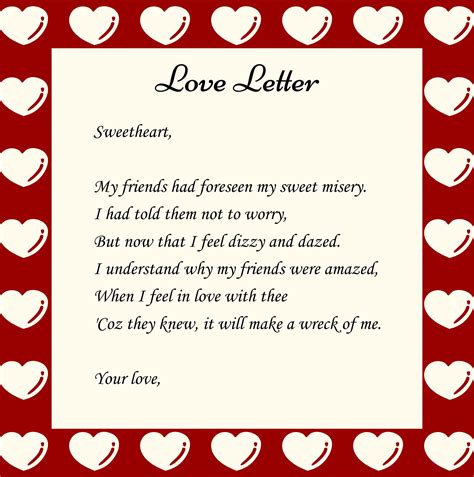 Love Letter
Sweetheart,
My friends had foreseen my sweet misery.
I had told them not to worry,
But now that I feel dizzy and dazed.
I understand why my friends were amazed,
When I feel in love with thee
'Coz they knew, it will make a wreck of me.
Your love,